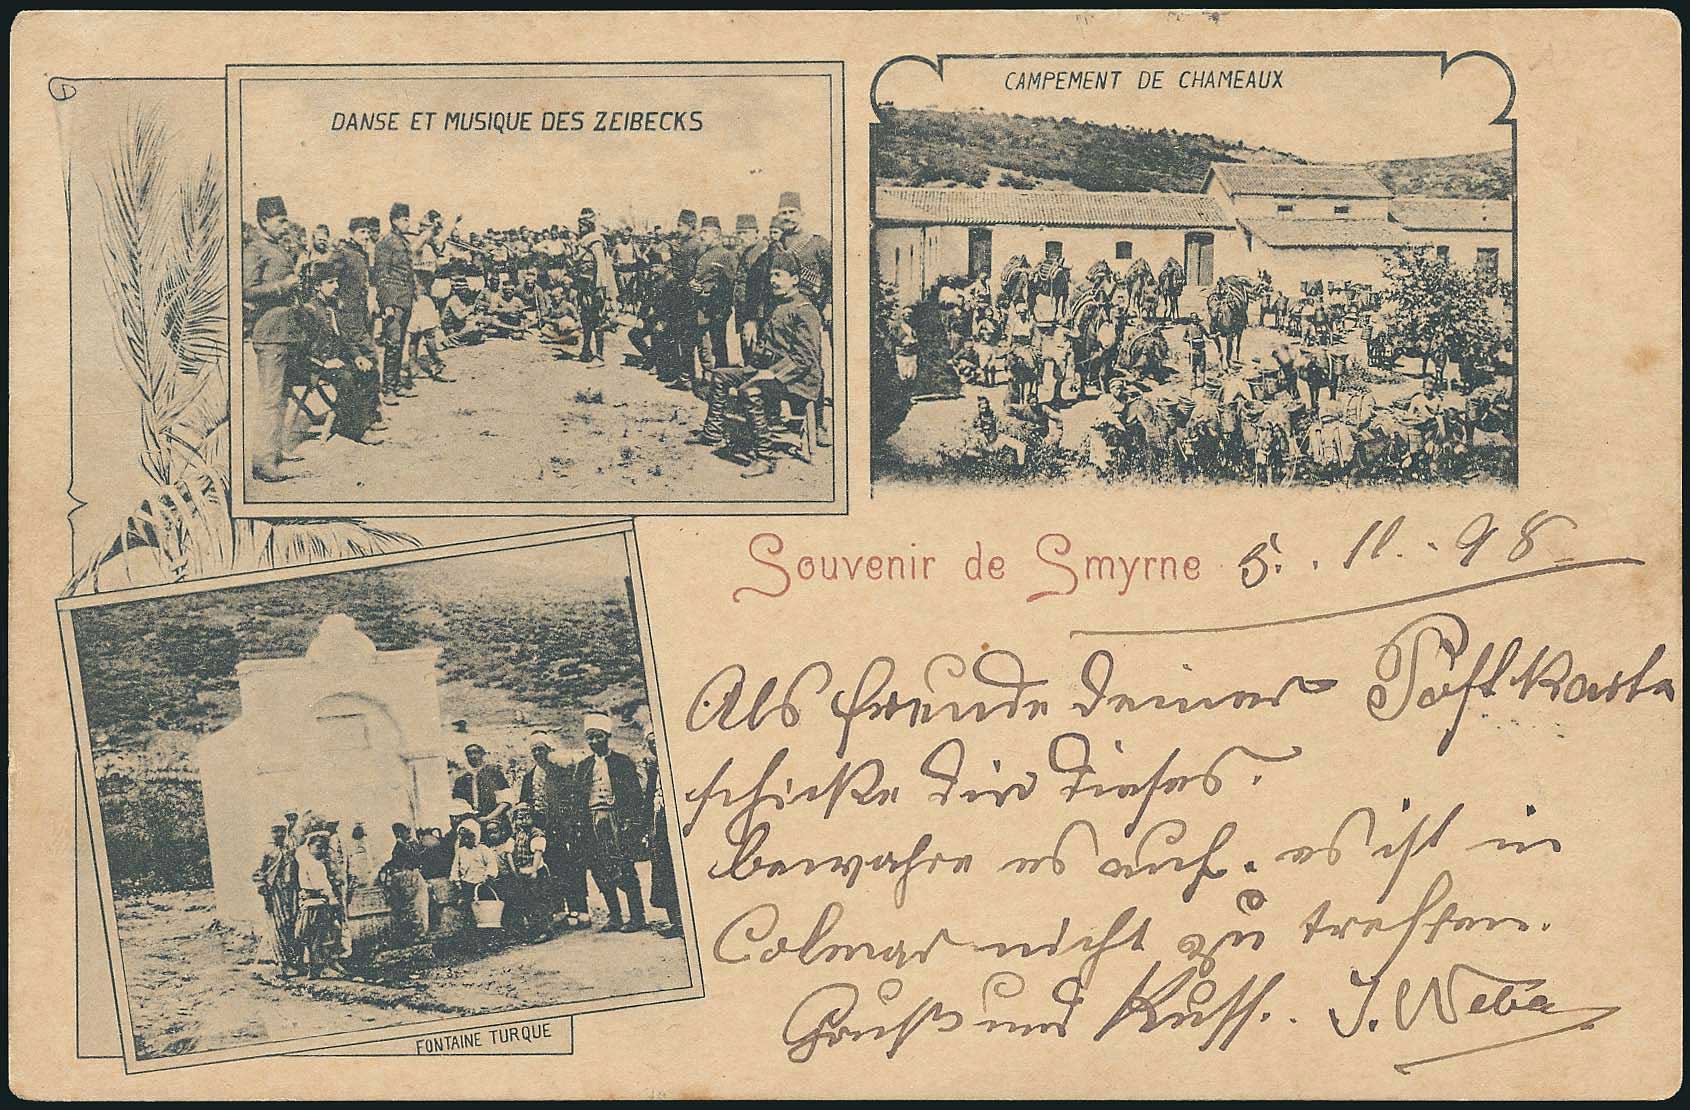 DANSE ET MUSIQUE DES ZEIBECKS
CAMPEMENT DE CHAMEAUX
Souvenir de Smyrne 5. 11. 98
Als freude deiner Postkarte
schicke dir dieses.
bewahre es auf. es ist in
Colmar nicht zu treffen.
Gruß und Kuss. J.
FONTAINE TURQUE